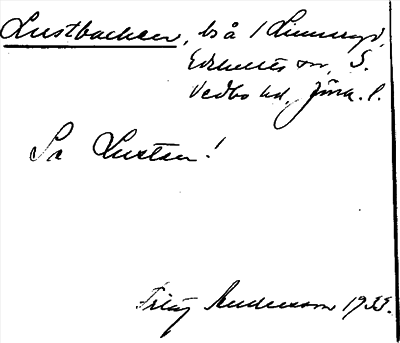 Lustbacken, bs å 1 Linneryd,
Edshults sn, S.
Vedbo hd, Jönk. l.
Se Lusten!
Fritz Andersson 1935.